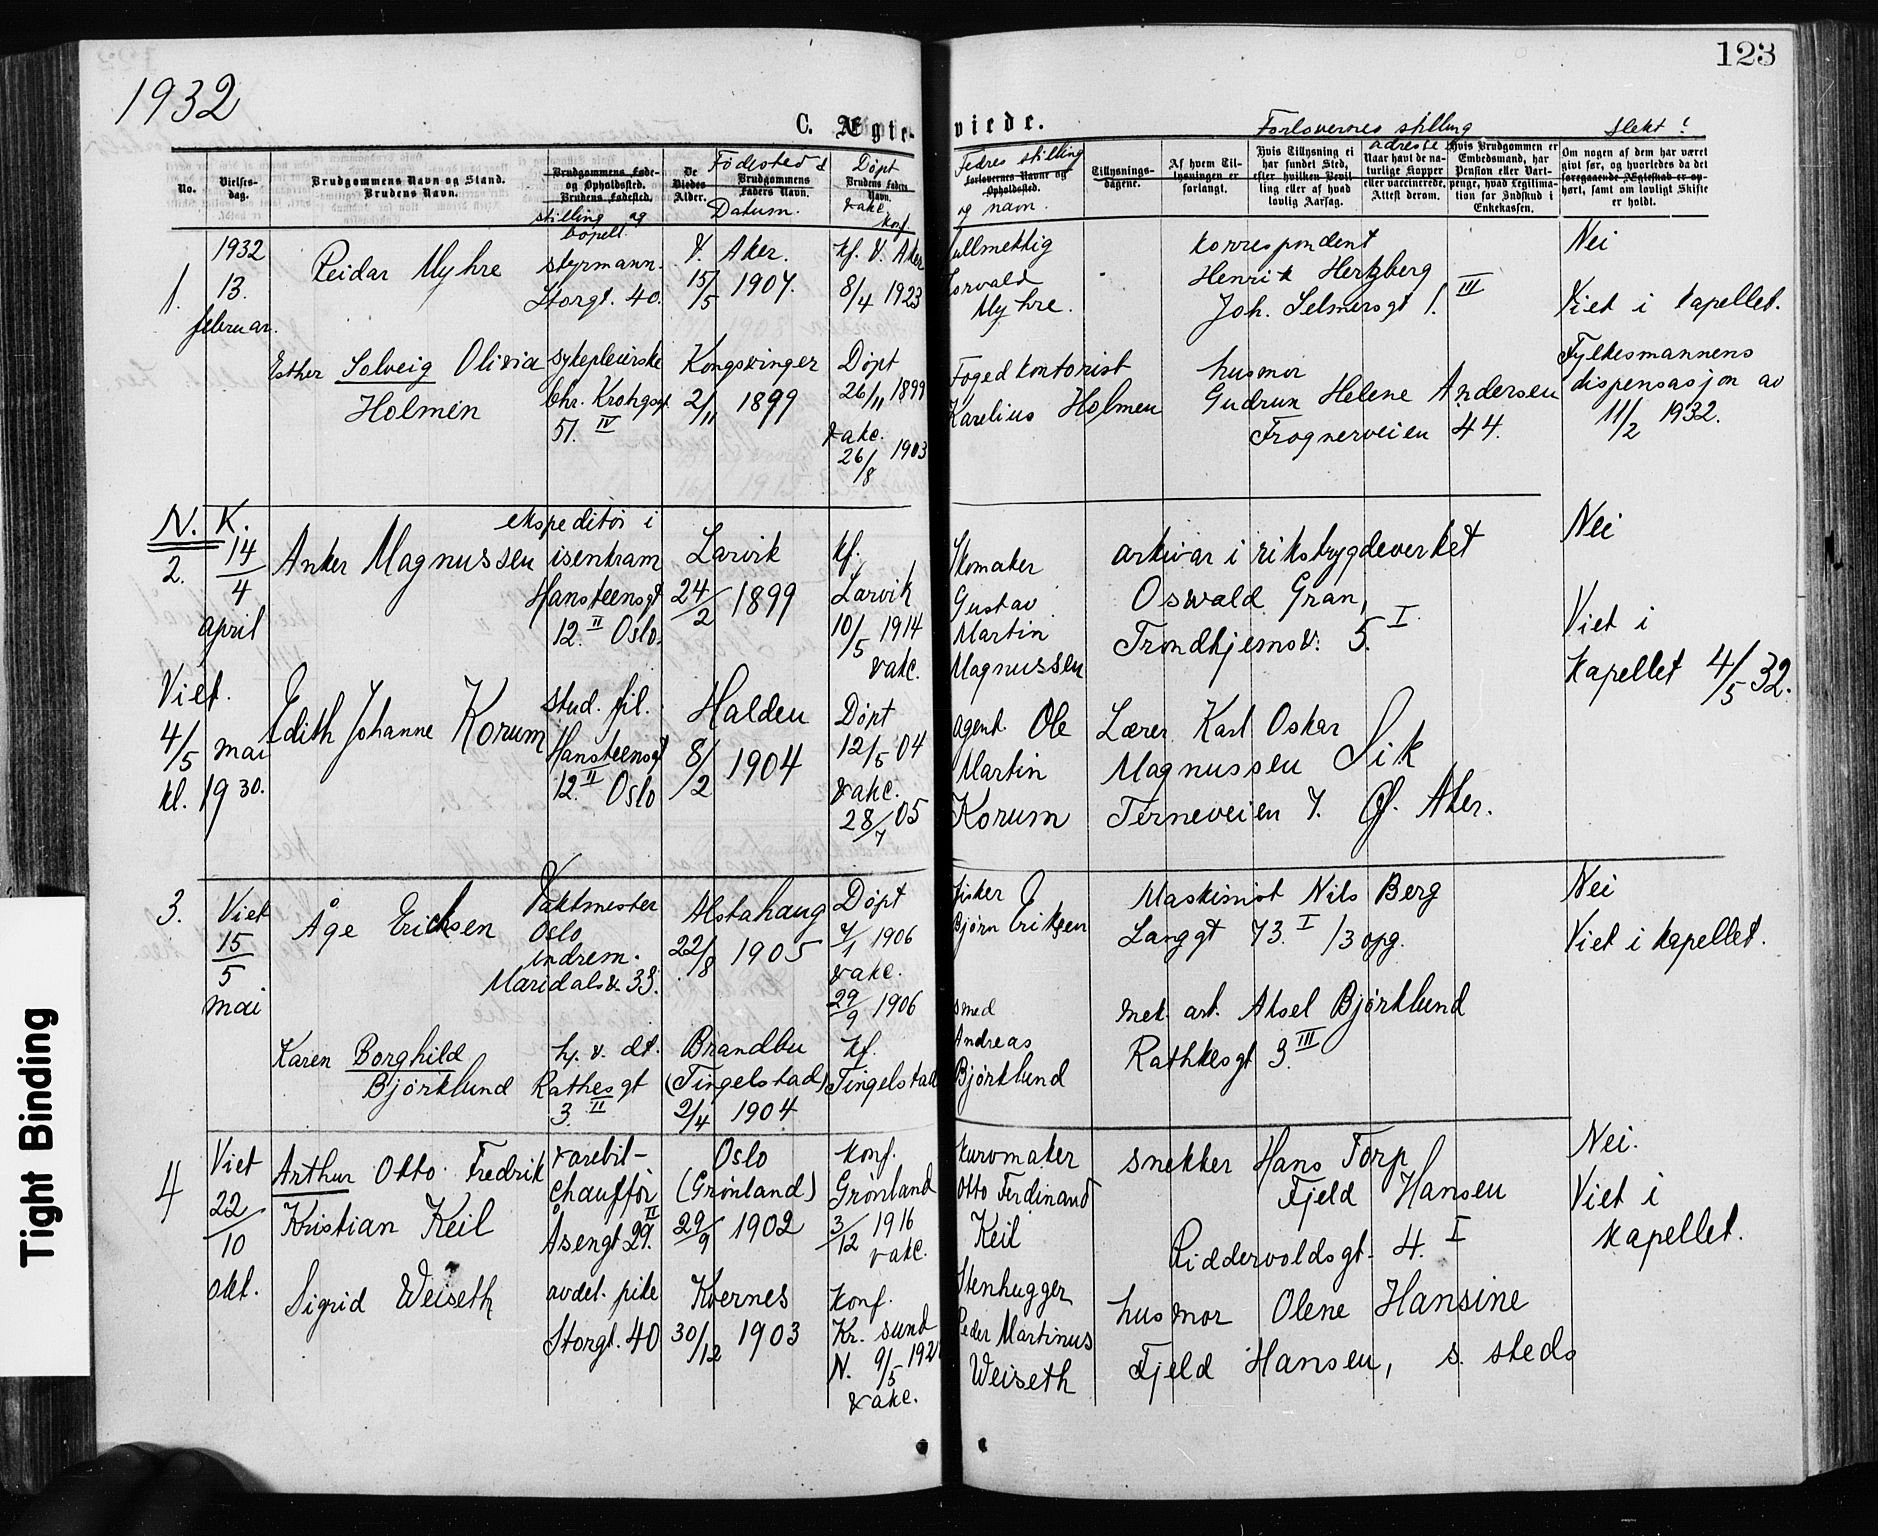 1932
123
C. Ægte-
viede.
Forlovernes stilling
Slekt?
adresse
No.
Vielses-
dag.
Brudgommens Navn og Stand.
Brudens Navn.
Brudgommens Føde-
og Opholdssted.
Brudens Fødested.
stilling og
bopell.
De
Viedes
Alder.
Fødested &
Brudgommens
Faders Navn.
Datum.
Døpt
Brudens Faders
Navn.
vakc.
konf.
Fedres stilling
Forlovernes Navne og
Opholdssted.
og navn.
Tillysnings-
dagene.
Af hvem Til-
lysningen er
forlangt.
Hvis Tillysning ei
har fundet Sted,
efter hvilken Bevil-
ling eller af hvad
lovlig Aarsag.
Naar havt de na-
turlige Kopper
eller vaccinerede.
Attest derom.
Hvis Brudgommen er
Embedsmand, har
Pension eller Vart-
penge, hvad Legitima-
tion for Indskud i
Enkekassen.
Om nogen af dem har været
givt før, og hvorledes da det
foregaaende Ægteskab er op-
hørt, samt om lovligt Skifte
er holdt.
1.
1932
13.
februar.
Reidar Myhre
styrmann.
Storgt. 40.
V. Aker.
15/5 1907.
Kf. V. Aker
8/4 1923
Fullmektig
Torvald
Myhre.
korrespondent
Henrik Hertzberg
Joh. Selmersgt 1. III
Nei
Viet i kapellet.
Esther Solveig Olivia
Holmen
sykepleierske
Chr. Krohgsgt
51. IV
Kongsvinger
2/11 1899
Døpt
26/11 1899
vakc.
26/8 1903
Fogedkontorist
Karelius Holmen
husmor
Gudrun Helene Andersen
Frognerveien 44.
Fylkesmannens
dispensasjon av
11/2 1932.
N. K.
2.
14/4
april
Viet.
4/5 mai
kl. 19 30.
Anker Magnussen
ekspeditør i
isenkram
Hansteensgt
12. II Oslo.
Larvik
24/2 1899
kf.
Larvik
10/5 1914
vakc.
Skomaker
Gustav
Martin
Magnussen
arkivar i rikstrygdeverket
Oswald Gran,
Trondhjemsv. 5. I
Nei
Viet i
kapellet 4/5 32.
Edith Johanne Korum
stud. fil.
Hansteensgt
12. II Oslo
Halden
8/2 1904
Døpt
12/5 04
vakc.
28/7 05
agent Ole
Martin
Korum
Lærer Karl Oskar
Magnussen Sik
Terneveien 7. Ø. Aker.
3.
Viet
15/5
mai
Åge Ericksen
Vaktmester
Oslo
indrem.
Maridalsv. 33.
Alstahaug
22/8 1905
Døpt
7/1 1906
vakc.
29/9 1906
fisker
Bjørn Eriksen
Maskinist Nils Berg
Langgt 73. I /3 opg.
Nei
Viet i kapellet.
Karen Borghild
Bjørklund
hj. v. dt.
Rathesgt
3. II
Brandbu
(Tingelstad)
2/4 1904
kf.
Tingelstad
smed
Andreas
Bjørklund
mek. arb. Aksel Bjørklund
Rathkesgt 3. III
4
Viet
22/10
okt.
Arthur Otto Fredrik
Kristian Keil
varebil-
chauffør
Åsengt 29. II
Oslo
(Grønland)
29/9 1902
konf.
Grønland
3/12 1916
vakc.
kurvmaker
Otto Ferdinand
Keil
snekker Hans Torp
Fjeld Hansen
Riddervoldsgt. 4. I
Nei.
Viet i
kapellet.
Sigrid Weiseth
avdel. pike
Storgt. 40
Kvernes
30/12 1903
Konf.
Kr. sund
N. 9/5
vakc.
Stenhugger
Peder Martinus
Weiseth
husmor Olene Hansine
Fjeld Hansen, s. steds
Tight Binding